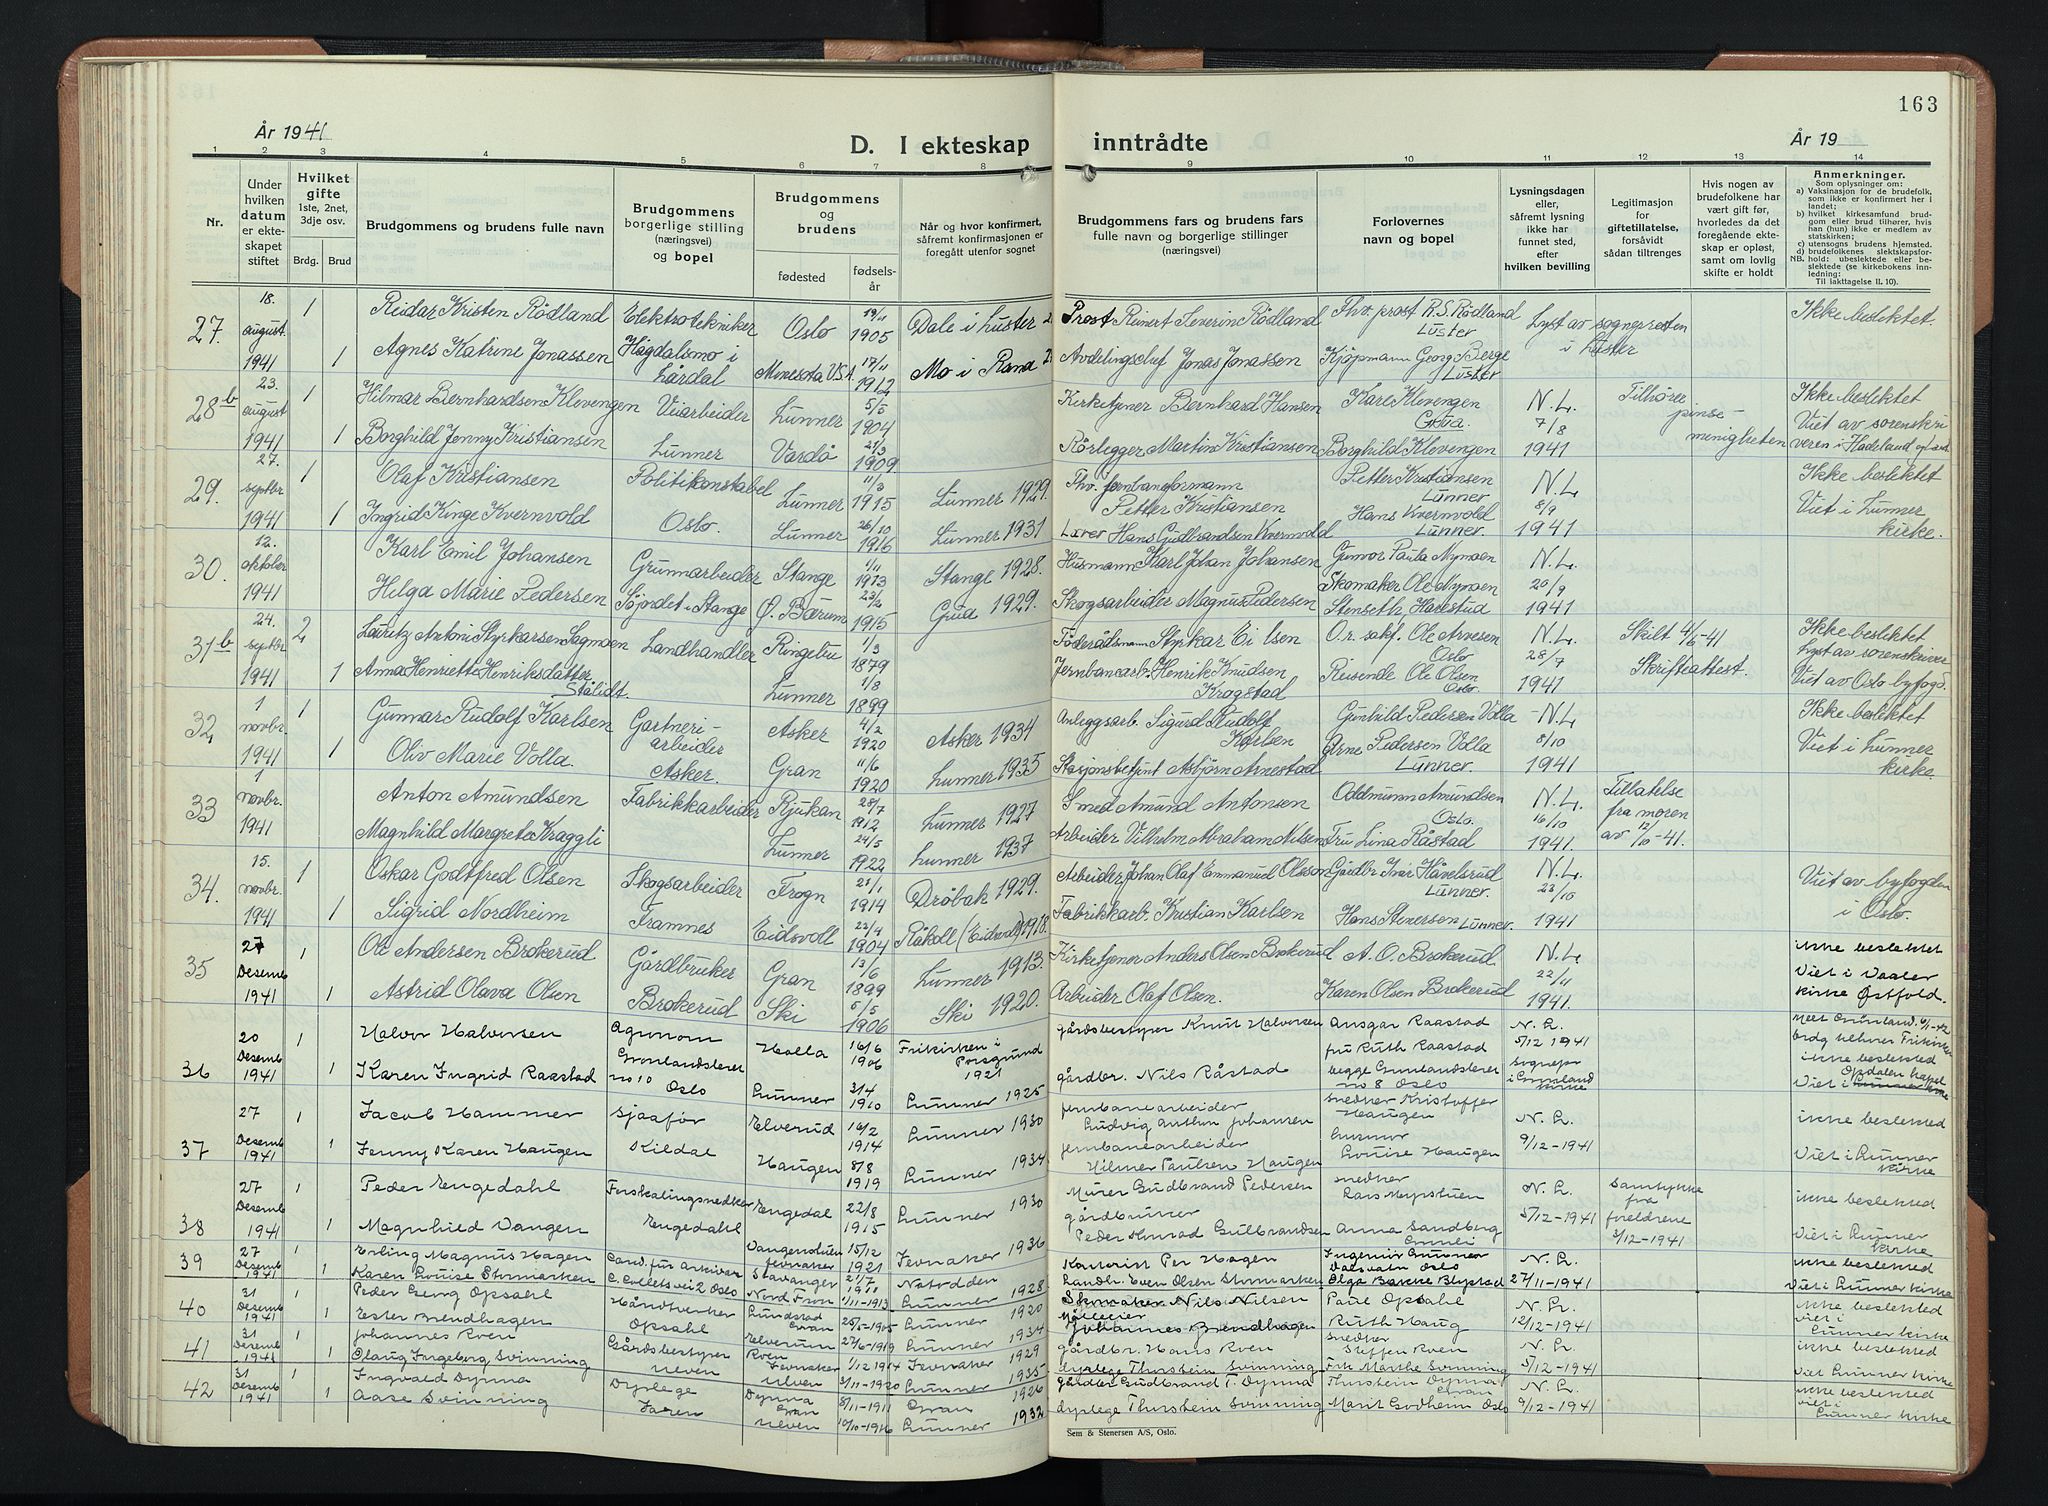 163
År 1941
D. I ekteskap inntrådte
År 19
1 2 3 4 5 6 7 8 9 10 11 12 13 14
Nr.
Under hvilken datum er ekteskapet stiftet
Hvilket gifte 1ste, 2net, 3dje osv.
Brdg. Brud
Brudgommens og brudens fulle navn
Brudgommens borgerlige stilling (næringsvei) og bopel
Brudgommens og brudens
fødested
fødselsår
Når og hvor konfirmert, såfremt konfirmasjonen er foregått utenfor sognet
Brudgommens fars og brudens fars fulle navn og borgerlige stillinger (næringsvei)
Forlovernes navn og bopel
Lysningsdagen eller, såfremt lysning ikke har funnet sted, efter hvilken bevilling
Legitimasjon for giftetillatelse, forsåvidt sådan tiltrenges
Hvis nogen av brudefolkene har vært gift før, hvorledes da det foregående ekteskap er opløst, samt om lovlig skifte er holdt
Anmerkninger.
Som oplysninger om:
a) Vaksinasjon for de brudefolk, som ikke er konfirmert her i landet;
b) hvilket kirkesamfund brudgom eller brud tilhører, hvis han (hun) ikke er medlem av statskirken;
c) utensogns brudens hjemsted.
d) brudefolkenes slektskapsforhold: ubeslektede eller beslektede (se kirkebokens innledning;
Til iakttagelse II. 10).
27 18. august 1941 1 Reidar Kristen Rödland Elektrotekniker Oslo 19/11 1905 Dale i Luster Prost Reinert Severin Rödland Fhv. prost R.S. Rödland Luster Lyst av sogneprosten i Luster Ikke beslektet.
1 Agnes Katrine Jonassen Högdalsmo i Lårdal Minesota U.S.A. 17/11 1912 Mo i Rana Avdelingschef Jonas Jonassen Kjöpmann Georg Berge Luster
28b 23. august 1941 1 Hilmar Bernhardsen Klevengen Veiarbeider Lunner 5/5 1904 Kirketjener Bernhard Hansen Kåre Klevengen Grua. N.L. 7/8 1941 Tilhører pinsemenigheten Ikke beslektet
1 Borghild Jenny Kristiansen Lunner Vardö 21/3 1909 Rörlegger Martin Kristiansen Borghild Klevengen Viet av sorenskriveren i Hadeland og Land.
29. 27. septbr 1941 1 Olaf Kristiansen Politikonstabel Lunner 11/3 1915 Lunner 1929. Fhv. jernbaneformann Petter Kristiansen Petter Kristiansen Lunner N.L. 8/9 1941 Ikke beslektet
1 Ingrid Kinge Kvernvold Oslo. Lunner 26/10 1916 Lunner 1931 Lærer Hans Gudbrandsen Kvernvold Hans Kvernvold Lunner. Viet i Lunner kirke.
30. 12. oktober 1941 Karl Emil Johansen Grunnarbeider Stange 1/11 1913 Stange 1928. Husmann Karl Johan Johansen Gunvor Paula Nymoen N.L. 20/9 1941
Helga Marie Pedersen Söjordet i Stange Ö. Bærum 23/2 1915 Grua 1929. Skogsarbeider Magnus Pedersen Skomaker Ole Nymoen Stenseth Harestua
31b 24. septbr 1941 2 Lauritz Antoni Styrkarsen Sagmoen Landhandler Ringebu 1/3 1879 Föderådsmann Styrkar Ei lsen O.r. sakf. Ole Arvesen Oslo N.L. 28/7 1941 Skilt 4/6-41 Ikke beslektet
1 Anna Henriette Henriksdatter Lunner 1/8 1899 Jernbanearb. Henrik Knudsen Krogstad Reisende Ole Olsen Oslo. Skifteattest. Lyst av sorenskriver Viet av Oslo byfogd
32 1 novbr. 1941 1 Gunnar Rudolf Karlsen Gartneriarbeider Asker 4/2 1920 Asker 1934 Anleggsarb. Sigurd Rudolf Karlsen Gunhild Pedersen Volla N.L. 8/10 1941 Ikke beslektet
1 Oliv Marie Volla. Asker. Gran 11/6 1920 Lunner 1935 Stasjonsbetjent Asbjörn Arnestad Arne Pedersen Volla Lunner. Viet i Lunner kirke.
33 1 novbr. 1941 Anton Amundsen Fabrikkarbeider Rjukan 28/7 1912 Lunner 1927 Smed Amund Antonsen Oddmunn Amundsen Oslo. N.L. 16/10 1941. Tillatelse fra moren av 12/10-41.
Magnhild Margrete Kraggli Lunner 24/5 1922 Lunner 1937 Arbeider Vilhelm Abraham Nilsen Fru Lina Råstad
34. 15. novbr. 1941 1 Oskar Godtfred Olsen Skogsarbeider Frogn 21/1 1914 Dröbak 1929. Arbeider Johan Olaf Emmanuel Olsson Gårdbr Ivar Håvelsrud Lunner. N.L. 23/10 1941 Viet av byfogden i Oslo.
1 Sigrid Nordheim Framnes Eidsvoll 22/4 1904 Råholt (Eidsvoll) 1918. Fabrikkarb. Kristian Karlsen Hans Stenersen Lunner.
35 27 Desemb 1941 1 Ole Andersen Brokerud Gårdbruker Gran 13/6 1899 Lunner 1913. Kirketjener Anders Olsen Brokerud A. O. Brokerud N.L. 22/11 1941. ikke beslektet
1 Astrid Olava Olsen Brokerud Ski 5/5 1906 Ski 1920. Arbeider Olaf Olsen. Karen Olsen Brokerud Viet i Vaaler kirke Østfold.
36 20 Desemb 1941 1 Halvor Halvorsen Agronom Holla 16/6 1906 Frikirken i Porsgrund 1921 gårdsbestyrer Knut Halvorsen Ansgar Raastad fru Ruth Raastad N.L. 5/12 1941 brdg tilhører Frikirken
1 Karen Ingrid Raastad Grønlandsleret no 10 Oslo Lunner 3/4 1910 Lunner 1925 gårdbr. Nils Råstad begge Grønlandsleret no 8 Oslo ikke beslekted Opdalen kapel Viet i Lunner kirke
37 27 Desemb 1941 1 Jacob Hammer sjåfør Elverud 16/2 1914 Lunner 1930 jernbanearbeider Ludvig Anthon Johansen snedker Kristoffer Haugen N.L. 9/12-1941 ikke beslekted
1 Jenny Karen Haugen Kildal Haugen 8/8 1919 Lunner 1934 jernbanearbeider Hilmer Paulsen Haugen Louise Haugen Viet i Lunner kirke
38 27 Desemb 1941 1 Peder Engedahl Forskalingssnedker Engedal 22/8 1915 Lunner 1930 Murer Gudbrand Pedersen snedker Lars Myrstuen N.L. 5/12-1941 samtykke fra foreldrene 3/12-1941 ikke beslekted
1 Magnhild Vangen Engedahl Vangenstuen Jevnaker 15/12 1921 Jevnaker 1936 gårdbruker Peder Amrud Gulbrandsen Anna Sandberg Viet i Lunner kirke
39 27 Desemb 1941 1 Erling Magnus Hagen Cand. jur arkivar Stavanger 21/7 1910 Notodden Kontorist Per Hagen Ingeniør Gunnar Oslo N.L. 27/11-1941 ikke beslekted
1 Karen Louise Stormarken C. Colletsvei 2 Oslo Nord Fron 1/11-1913 Lunner 1928 Landbr. Even Olsen Stormarken Olga Bakke Blystad Viet i Lunner kirke
40 31 Desemb 1941 Peder Georg Opsahl Håndverker Lunner 1920 Skomaker Nils Nilsen Paul Opsahl N.L. 12/12-1941 ikke beslekted
1 Ester Brendhagen Opsahl Johannes Brendhagen Ruth Haug viet i Lunner kirke
41 31 Desemb 1941 1 Johannes Roen Gårdsbestyrer Elverum 27/6-1919 Lunner 1934 gårdbr. Hans Roen snedker Steffen Roen N.L. 5/12-1941 ikke beslekted
1 Olaug Ingeborg Svinning Ulven 1/12 1914 Jevnaker 1929 dyrlege Thorstein Svinning Frk Marthe Svinning Viet i Lunner kirke
42 31 Desemb 1941 1 Ingvald Dynna Dyrlege Dynna Gran 8/11-1911 Gran 1926 gårdbr Gudbrand T. Dynna Thorstein Dynna Gran N.L. 9/12-1941 ikke beslekted
1 Aase Svinning Jaren Ulven 10/10-1916 Lunner 1932 dyrlege Thorstein Svinning Marit Godheim Oslo viet i Lunner kirke
Sem & Stenersen A/S, Oslo.